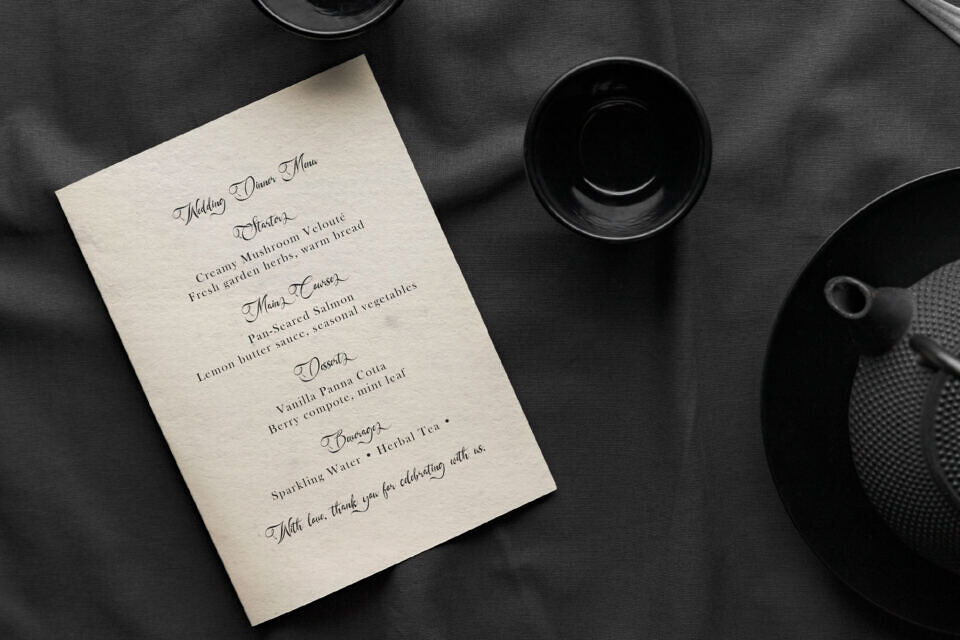 Wedding Dinner Menu
Starter
Creamy Mushroom Velouté
Fresh garden herbs, warm bread
Main Course
Pan-Seared Salmon
Lemon butter sauce, seasonal vegetables
Dessert
Vanilla Panna Cotta
Berry compote, mint leaf
Beverages
Sparkling Water • Herbal Tea •
With love, thank you for celebrating with us.